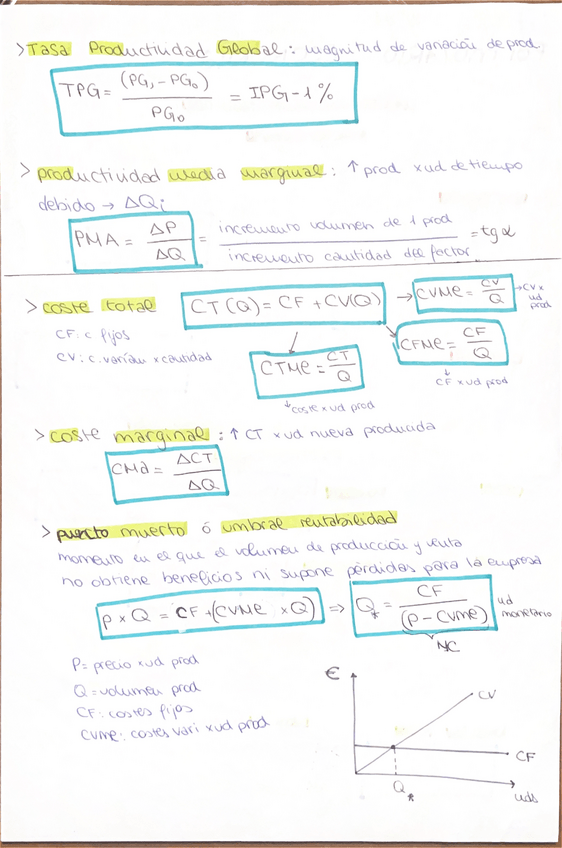 > Tasa Productividad Global: magnitud de variación de prod.
TPG = (PG₁ - PG₀) / PG₀ = IPG - 1 %
> productividad media marginal: ↑ prod x ud de tiempo
debido → ΔQi
PMA = ΔP / ΔQ = incremento volumen de 1 prod / incremento cantidad del factor = tg α
> coste total CT(Q) = CF + CV(Q) → CVMe = CV / Q → CV x ud prod
CF: c fijos
CV: c. varían x cantidad
CTMe = CT / Q
↓ coste x ud prod
CFMe = CF / Q
↓ CF x ud prod
> coste marginal: ↑ CT x ud nueva producida
CMa = ΔCT / ΔQ
> puerto muerto ó umbral rentabilidad
momento en el que el volumen de producción y venta
no obtiene beneficios ni supone pérdidas para la empresa
p x Q = CF + (CVMe x Q) ⇒ Q* = CF / (p - CVMe) ud monetario
MC
P = precio x ud prod
Q = volumen prod
CF: costes fijos
CVMe: costes vari x ud prod
€
CV
CF
Q*
uds